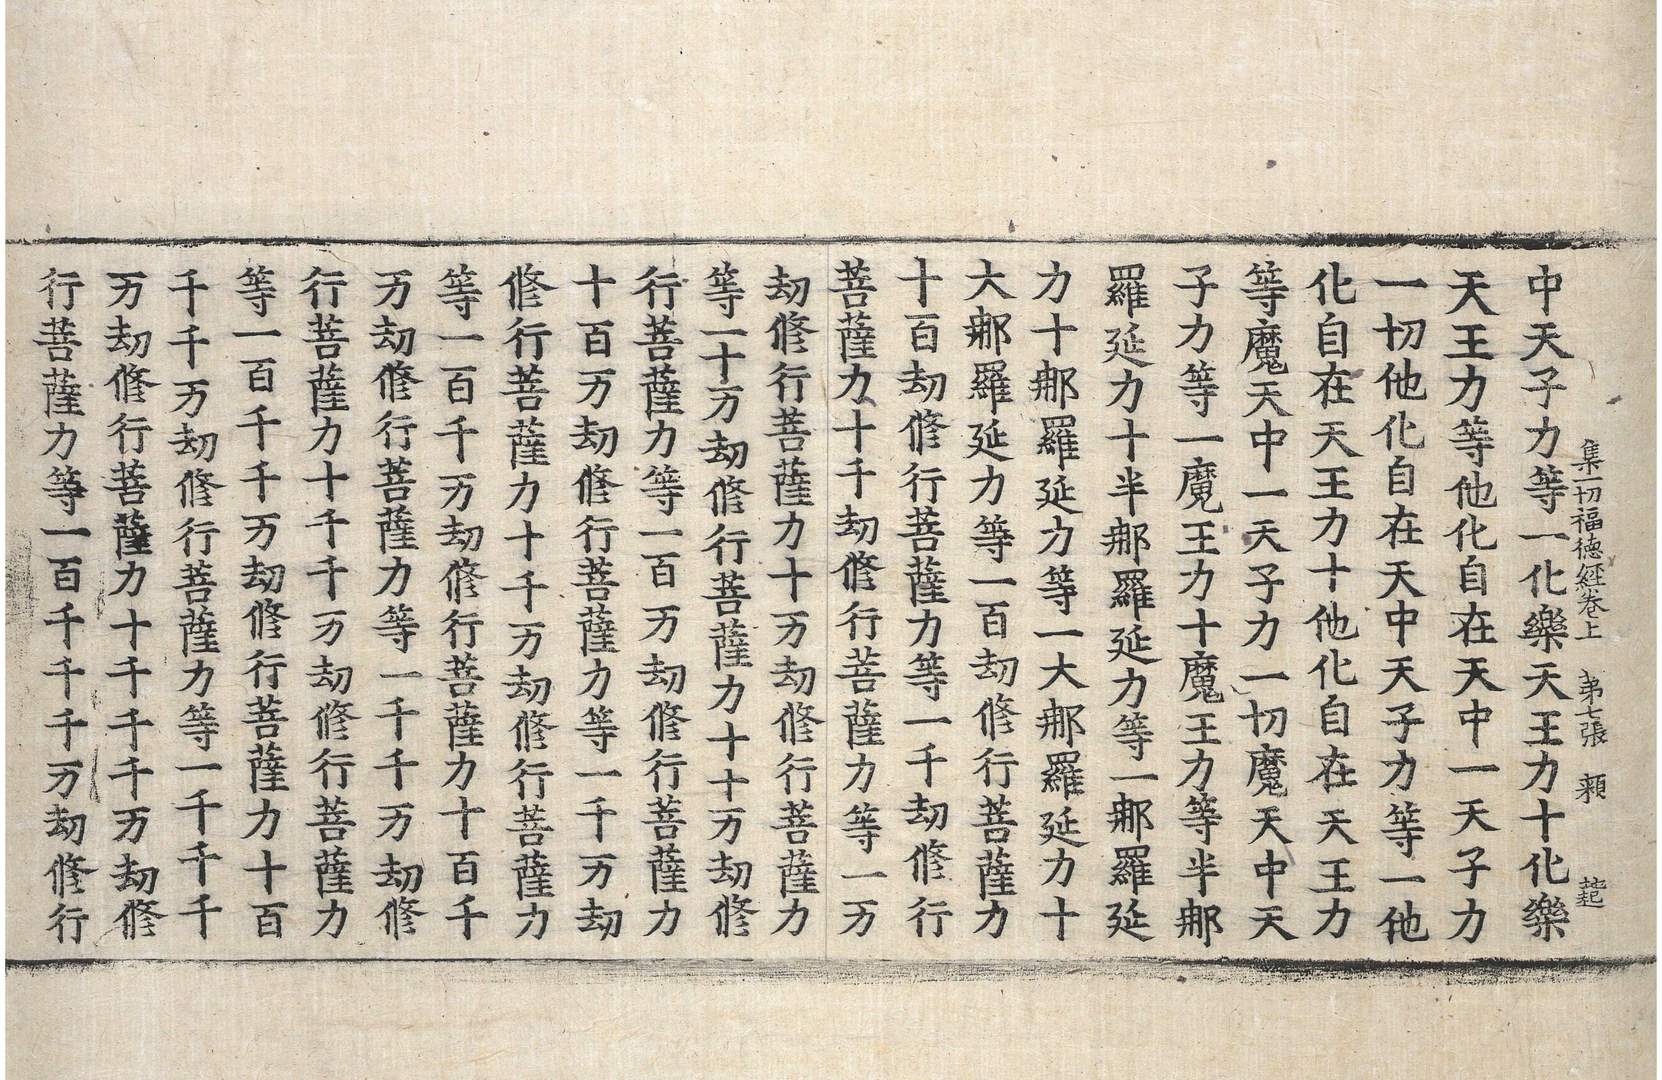 集一切福德經卷上 第七張 頼 起
中天子力等一化樂天王力十化樂
天王力等他化自在天中一天子力
一切他化自在天中天子力等一他
化自在天王力十他化自在天王力
等魔天中一天子力一切魔天中天
子力等一魔王力十魔王力等半那
羅延力十半那羅延力等一那羅延
力十那羅延力等一大那羅延力十
大那羅延力等一百劫修行菩薩力
十百劫修行菩薩力等一千劫修行
菩薩力十千劫修行菩薩力等一万
劫修行菩薩力十万劫修行菩薩力
等一十万劫修行菩薩力十十万劫修
行菩薩力等一百万劫修行菩薩力
十百万劫修行菩薩力等一千万劫
修行菩薩力十千万劫修行菩薩力
等一百千万劫修行菩薩力十百千
万劫修行菩薩力等一千千万劫修
行菩薩力十千千万劫修行菩薩力
等一百千千万劫修行菩薩力十百
千千万劫修行菩薩力等一千千千
万劫修行菩薩力十千千千万劫修
行菩薩力等一百千千千万劫修行